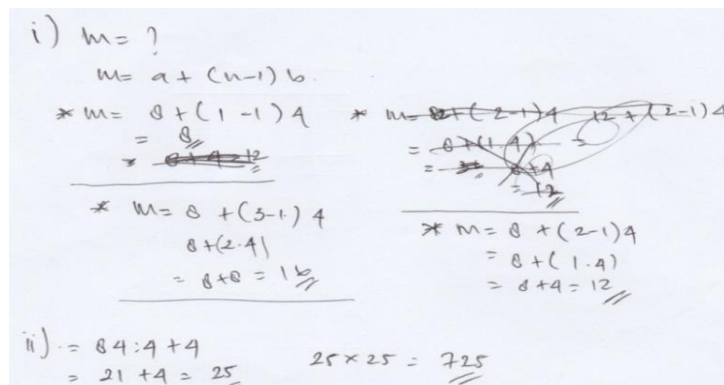 i) m = ?
m = a + (n-1) b.
* m = 8 + (1-1) 4
= 8
* 8 + 4 = 12
* m = 8 + (3-1) 4
8 + (2.4)
= 8 + 8 = 16
* m = 12 + (2-1) 4 = 12 + (2-1) 4
= 8 + (1.4)
= 8 + 4
= 12
* m = 8 + (2-1) 4
= 8 + (1.4)
= 8 + 4 = 12
ii) = 84 : 4 + 4
= 21 + 4 = 25
25 × 25 = 725